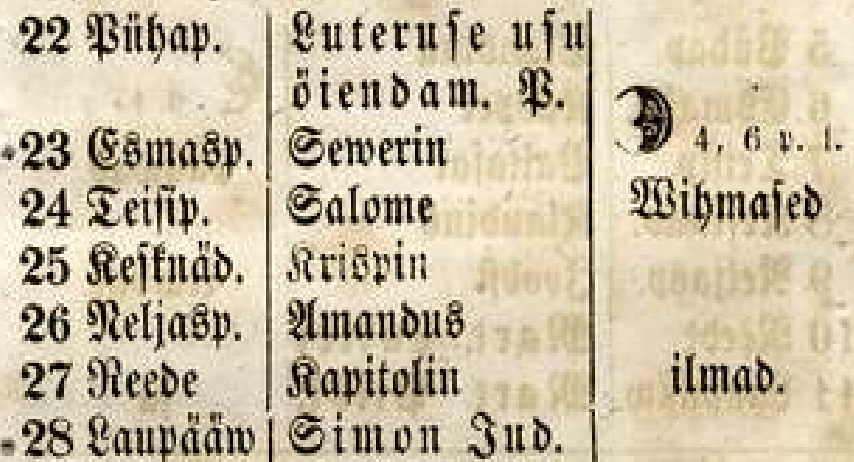 22 Pühap. Luteruse usu
öiendam. P.
23 Esmasp. Sewerin 4, 6 p. l.
24 Teisip. Salome Wihmased
25 Kesknäd. Krispin
26 Neljasp. Amandus
27 Reede Kapitolin ilmad.
28 Laupääw Simon Jud.